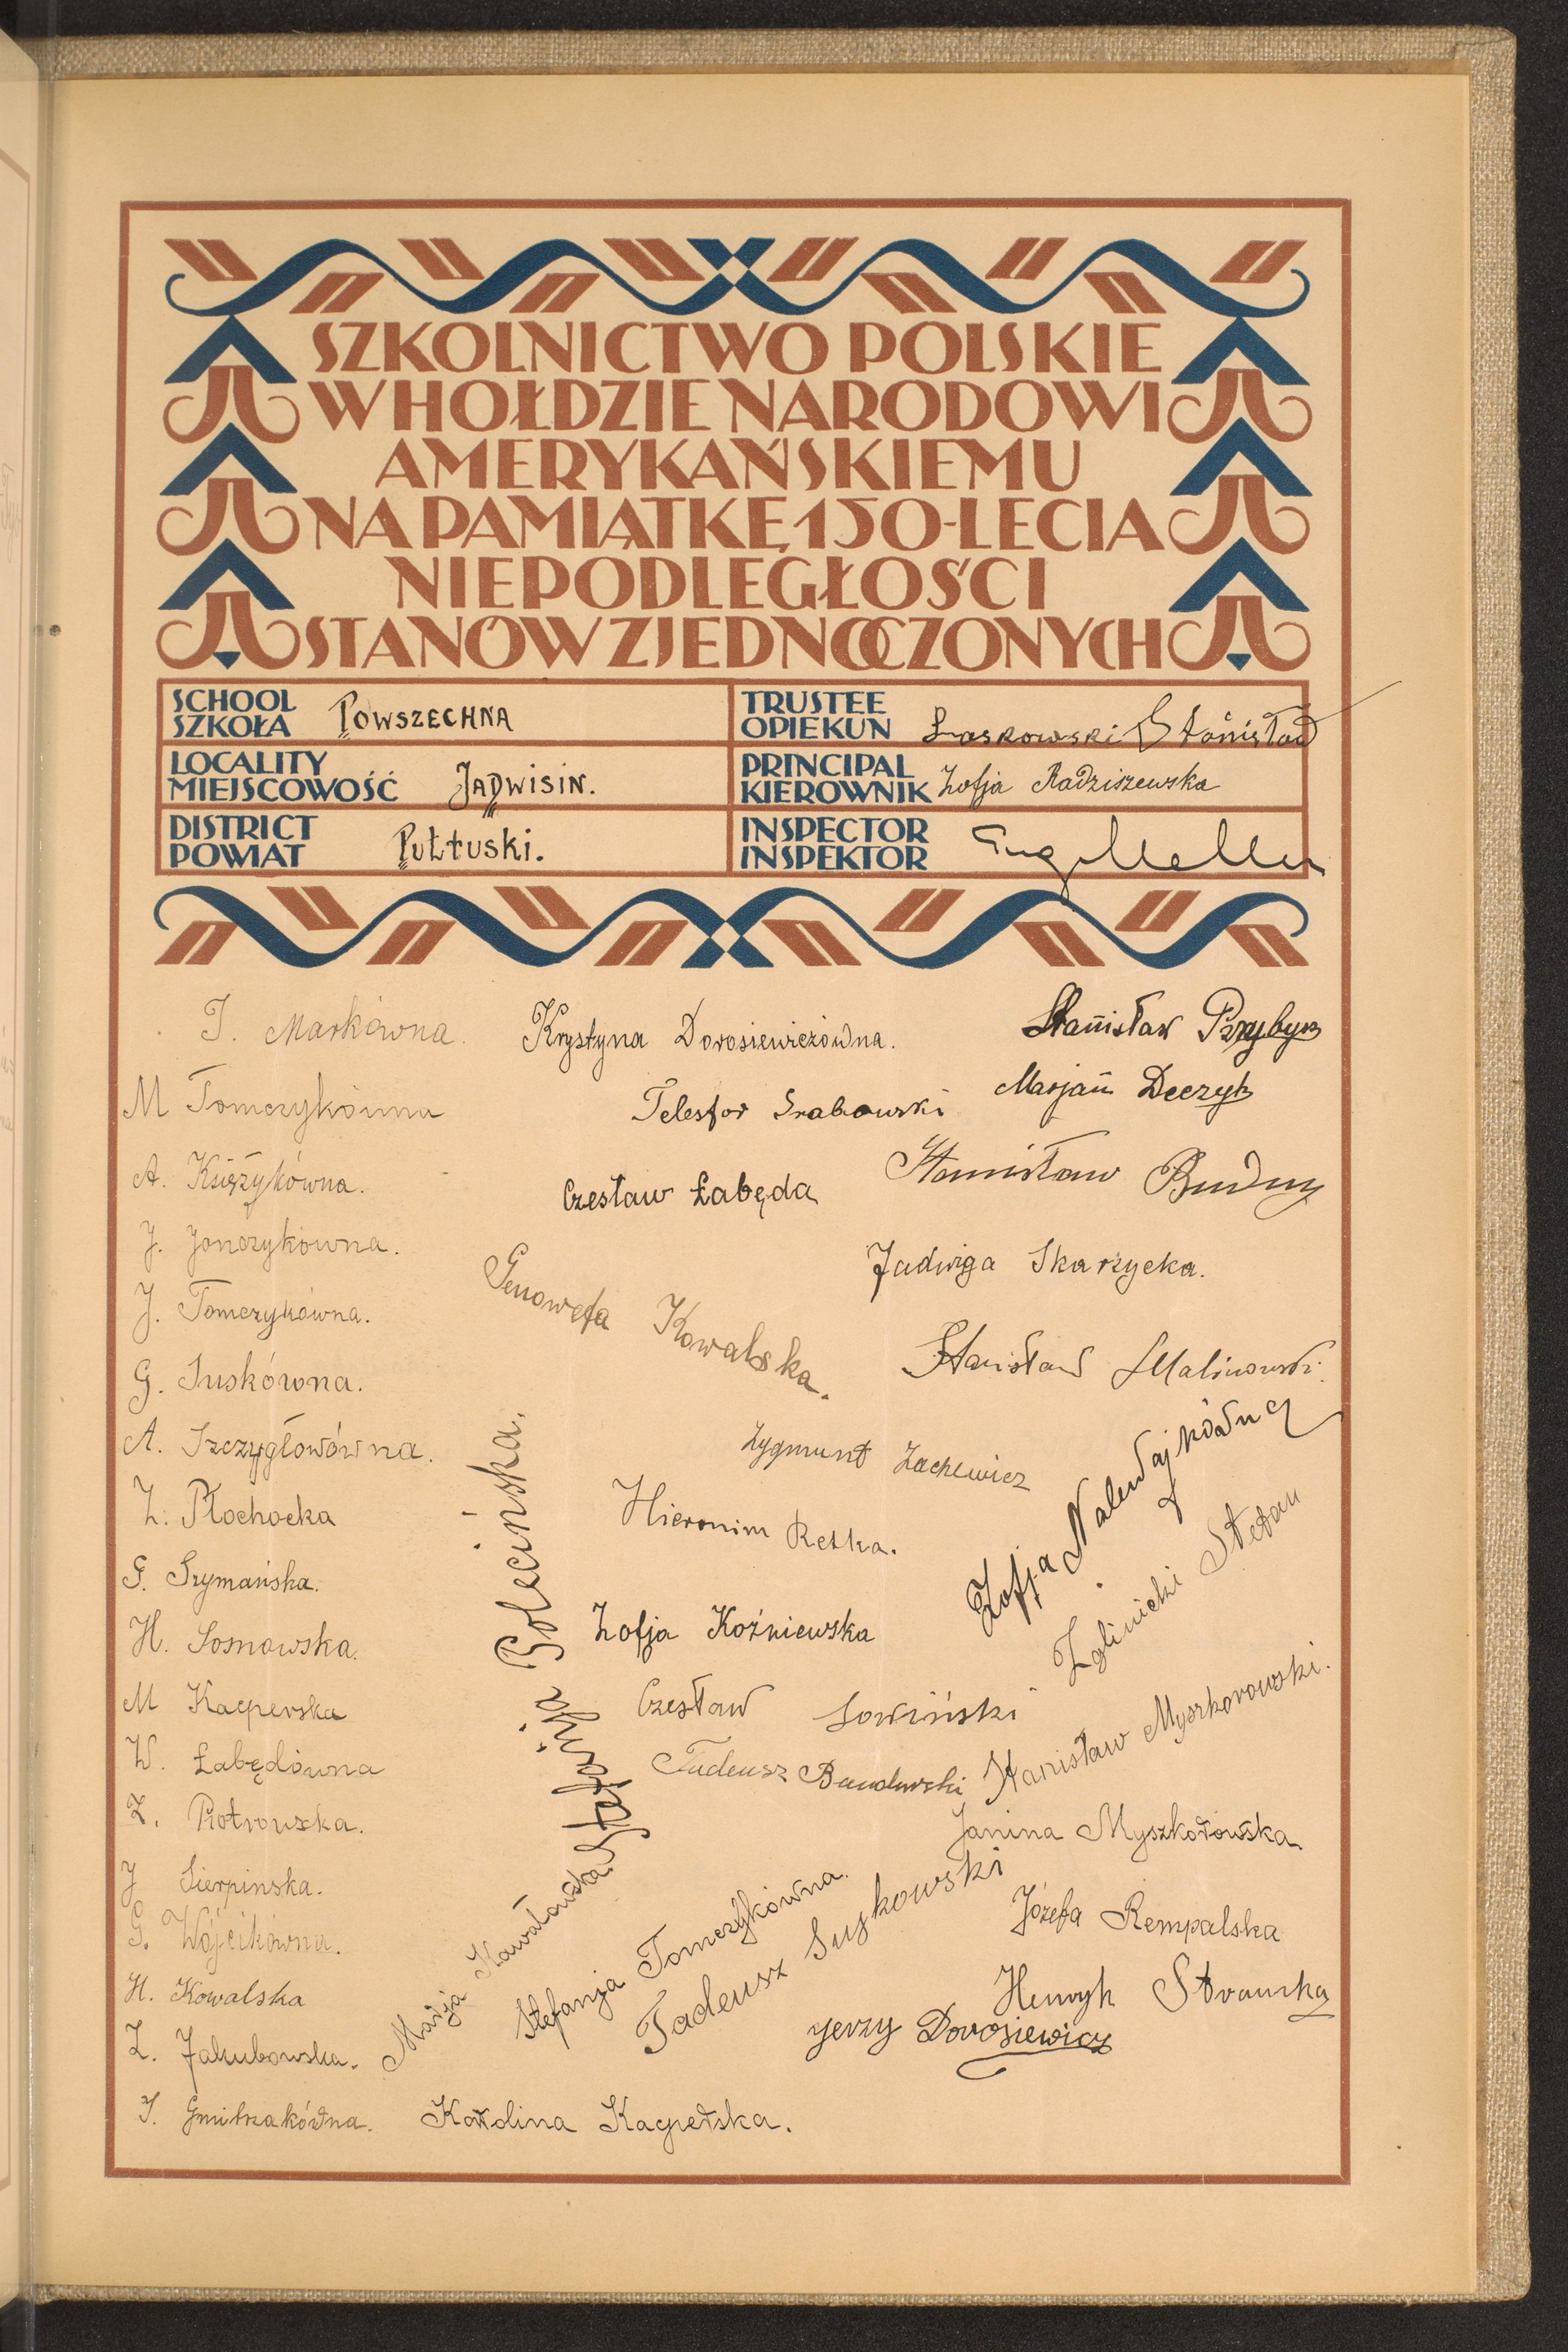 SZKOLNICTWO POLSKIE
W HOŁDZIE NARODOWI
AMERYKAŃSKIEMU
NA PAMIĄTKĘ 150-LECIA
NIEPODLEGŁOŚCI
STANÓW ZJEDNOCZONYCH
SCHOOL
SZKOŁA POWSZECHNA
LOCALITY
MIEJSCOWOŚĆ JADWISIN.
DISTRICT
POWIAT PUŁTUSKI.
TRUSTEE
OPIEKUN Łaskowski Stanisław
PRINCIPAL
KIEROWNIK Zofja Radziszewska
INSPECTOR
INSPEKTOR
J. Markówna.
M Tomczykówna
A. Księżykówna.
J. Jonczykówna.
J. Tomczykówna.
G. Suskówna.
A. Szczygłowówna.
Z. Płochocka
G. Szymańska.
H. Sosnowska.
M Kacperska
W. Łabędówna
Z. Piotrowska.
J Sierpinska.
G. Wójcikówna.
H. Kowalska
Z. Jakubowska.
J. Gmitrzakówna.
Krystyna Dorosiewiczówna.
Telesfor Grabowski
Czesław Łabęda
Genowefa Kowalska.
Zygmunt Zachewicz
Hieronim Retka.
Stefanja Bolecińska.
Zofja Koźniewska
Czesław Sowiński
Tadeusz
Marja Kawałowska
Stefanja Tomczykówna.
Tadeusz Suskowski
Karolina Kacperska.
Stanisław Przybysz
Marjan Deczyk
Stanisław Budny
Jadwiga Skarżycka.
Stanisław Malinowski.
Zofja Nalewajkówna
Zglinicki Stefan
Stanisław Myszkorowski.
Janina Myszkorowska
Józefa Rempalska
Henryk
Jerzy Dorosiewicz